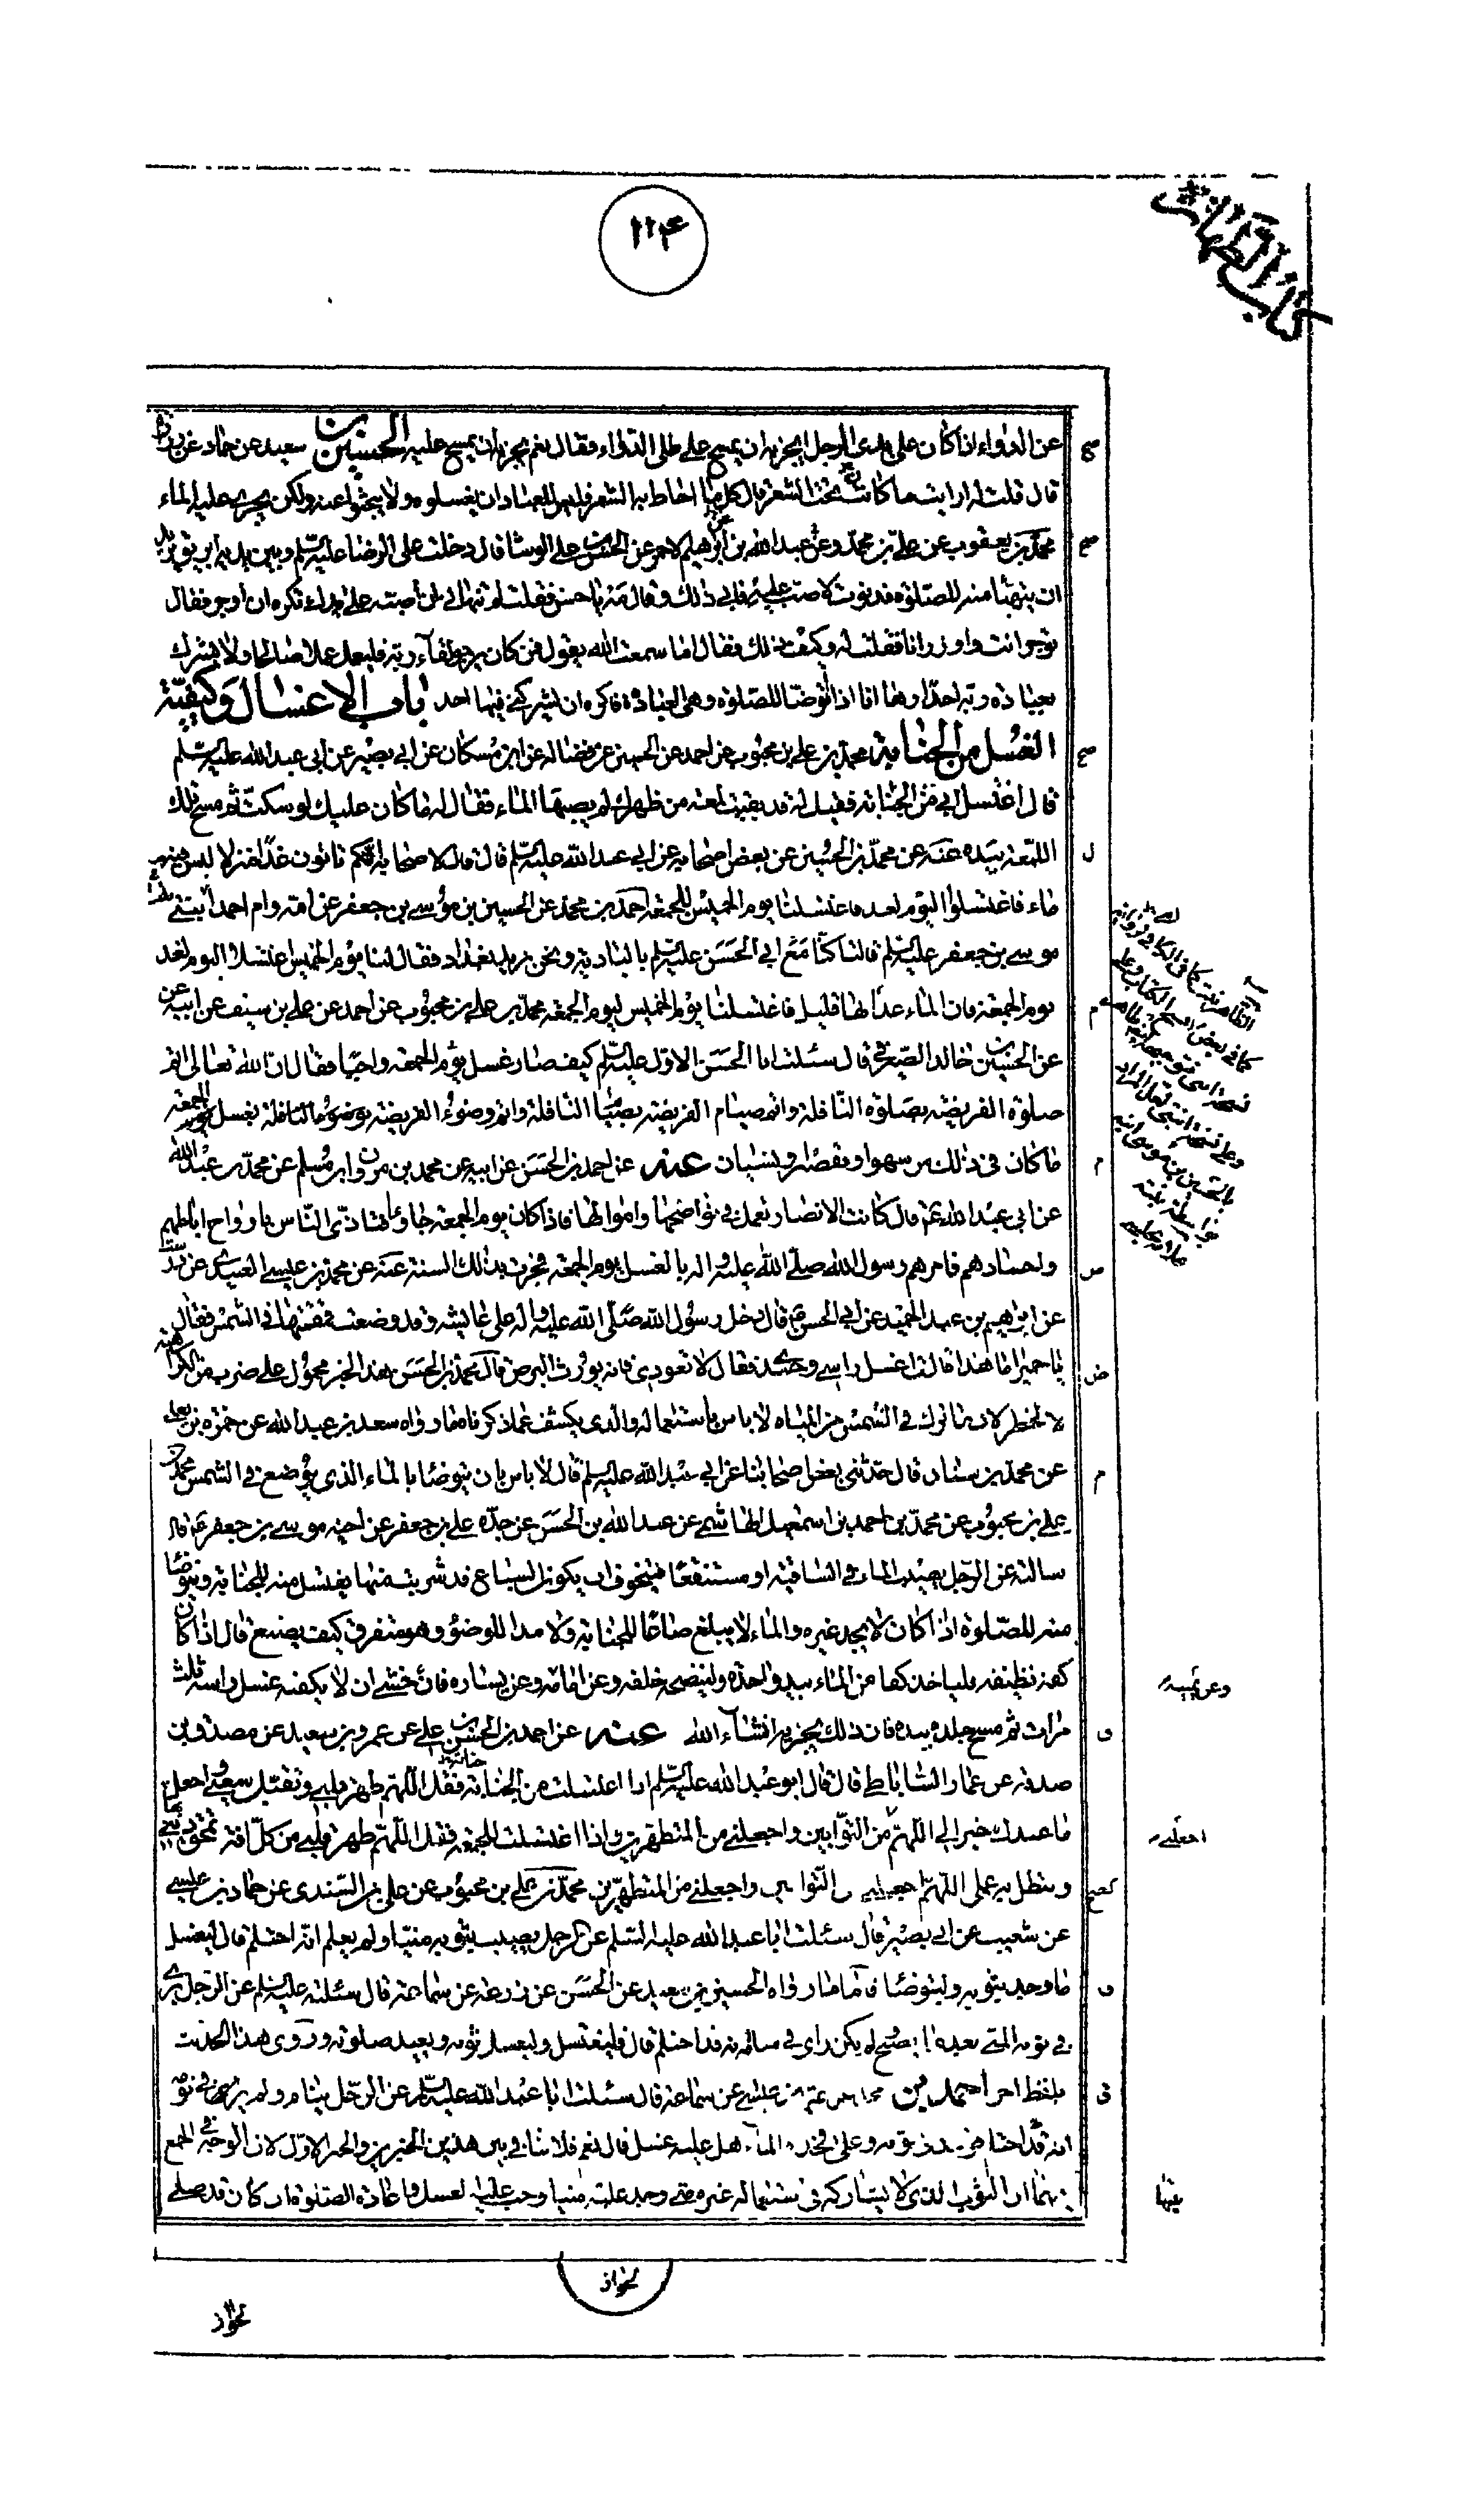 كتاب الطهارة
١١۴
عن الدواء اذا كان على يدى الرجل ايجزيه ان يمسح على طلى الدواء فقال نعم يجزيه ان يمسح عليه الحسين بن سعيد عن حماد عن
قال قلت له ارايت ما كان تحت الشعر قال كل ما احاط به الشعر فليس للعباد ان يغسلوه ولا يبحثوا عنه ولكن يجرى عليه الماء
محمد بن يعقوب عن على بن محمد وعن عبدالله بن ابرهيم الاحمر عن الحسن بن على الوشا قال دخلت على الرضا عليه السلم وبين يديه ابريق يريد
ان يتهيأ منه للصلوة فدنوت لاصب عليه فابى ذلك وقال مه يا حسن فقلت له تنهانى ان اصبه على يدك تكره ان اوجر فقال
توجر انت واوزر انا فقلت له وكيف ذلك فقال اما سمعت الله يقول فمن كان يرجو لقاء ربه فليعمل عملا صالحا ولا يشرك
بعبادة ربه احدا وها انا ذا اتوضا للصلوة وهى العبادة فاكره ان يشركنى فيها احد باب الاغسال وكيفية
الغسل من الجنابة محمد بن على بن محبوب عن احمد عن الحسين عن فضالة عن ابن مسكان عن ابى بصير عن ابى عبدالله عليه السلم
قال اغتسل ابى من الجنابة فقيل له قد بقيت لمعة من ظهرك لم يصبها الماء فقال له ما كان عليك لو سكت ثم مسح تلك
اللمعة بيده عنه عن محمد بن الحسين عن بعض اصحابه عن ابى عبدالله عليه السلم قال قال لاصحابه انكم تاتون غدا منزلا ليس فيه
ماء فاغتسلوا اليوم لغد فاغتسلنا يوم الخميس للجمعة احمد بن محمد عن الحسين بن موسى بن جعفر عن امه وام احمد ابنتى
موسى بن جعفر عليه السلم قالتا كنا مع ابى الحسن عليه السلم بالبادية ونحن نريد بغداد فقال لنا يوم الخميس اغتسلا اليوم لغد
يوم الجمعة فان الماء غدا بها قليل فاغتسلنا يوم الخميس ليوم الجمعة محمد بن على بن محبوب عن احمد عن على بن سيف عن ابيه
عن الحسين بن خالد الصيرفى قال سئلت ابا الحسن الاول عليه السلم كيف صار غسل يوم الجمعة واجبا فقال ان الله تعالى اتم
صلوة الفريضة بصلوة النافلة واتم صيام الفريضة بصيام النافلة واتم وضوء الفريضة بغسل يوم الجمعة
ما كان فى ذلك من سهو او تقصير او نسيان عنه عن احمد بن الحسن عن ابيه عن محمد بن عبدالله
عن ابى عبدالله ع قال كانت الانصار تعمل فى نواضحها واموالها فاذا كان يوم الجمعة جاؤا فتاذى الناس بارواح اباطهم
واجسادهم فامرهم رسول الله صلى الله عليه واله بالغسل يوم الجمعة فجرت بذلك السنة عنه عن محمد بن عيسى العبيدى عن
عن ابراهيم بن عبد الحميد عن ابى الحسن ع قال دخل رسول الله صلى الله عليه واله على عايشة وقد وضعت قمقمتها فى الشمس فقال
يا حميرا ما هذا قالت اغسل راسى وجسدى فقال لا تعودى فانه يورث البرص قال محمد بن الحسن هذا الخبر محمول على ضرب من الكراهة
لا الحظر لان ما ترك فى الشمس من المياه لا باس باستعماله والذى يكشف عما ذكرناه ما رواه سعد بن عبدالله عن حمزة بن يعلى
عن محمد بن سنان قال حدثنى بعض اصحابنا عن ابى عبدالله عليه السلم قال لا باس بان يتوضا بالماء الذى يوضع فى الشمس محمد بن
على بن محبوب عن محمد بن احمد بن اسمعيل الهاشمى عن عبدالله بن الحسن عن جده على بن جعفر عن اخيه موسى بن جعفر ع قال
سالته عن الرجل يصيب الماء فى الساقية او مستنقعا فيتخوف ان يكون السباع قد شربت منها يغتسل منه للجنابة ويتوضا
منه للصلوة اذا كان لا يجد غيره والماء لا يبلغ صاعا للجنابة ولا مدا للوضؤ وهو متفرق كيف يصنع قال اذا كان
كفه نظيفه فلياخذ كفا من الماء بيد واحدة ولينضحه خلفه وعن امامه وعن يساره فان خشى ان لا يكفيه غسل راسه ثلث
مرات ثم مسح جلده بيده فان ذلك يجزيه انشاء الله عنه عن احمد بن الحسن بن على عن عمرو بن سعيد عن مصدق بن
صدقه عن عمار الساباطى قال قال ابو عبدالله عليه السلم اذا اغتسلت من الجنابة فقل اللهم طهر قلبى وتقبل سعيى واجعل
ما عندك خيرا لى اللهم من التوابين واجعلنى من المتطهرين واذا اغتسلت للجمعة فقل اللهم طهر قلبى من كل افة تمحق دينى
وتبطل به عملى اللهم اجعلنى من التوابين واجعلنى من المتطهرين محمد بن على بن محبوب عن على بن السندى عن حماد بن عيسى
عن شعيب عن ابى بصير قال سئلت ابا عبدالله عليه السلم عن الرجل يصيب بثوبه منيا ولم يعلم انه احتلم قال ليغسل
ما وجد بثوبه وليتوضا فاما ما رواه الحسين بن سعيد عن الحسن عن زرعة عن سماعة قال سئلته عليه السلم عن الرجل يرى
فى ثوبه المنى بعد ما يصبح لم يكن راى فى منامه انه قد احتلم قال فليغتسل وليغسل ثوبه ويعيد صلوته وروى هذا الحديث
بلفظ اخر احمد بن محمد عن عثمان بن عيسى عن سماعة قال سئلت ابا عبدالله عليه السلم عن الرجل ينام ولم ير فى نومه
انه قد احتلم فوجد فى ثوبه وعلى فخذه الماء هل عليه غسل قال نعم فلا تنافى بين هذين الخبرين والخبر الاول لان الوجه فى الجمع
بينهما ان الثوب الذى لا يشاركه فى استعماله غيره متى وجد عليه منيا وجب عليه الغسل واعادة الصلوة ان كان قد صلى
وعن يمينه
اجعلنى
بينها
نحواز
نحواز